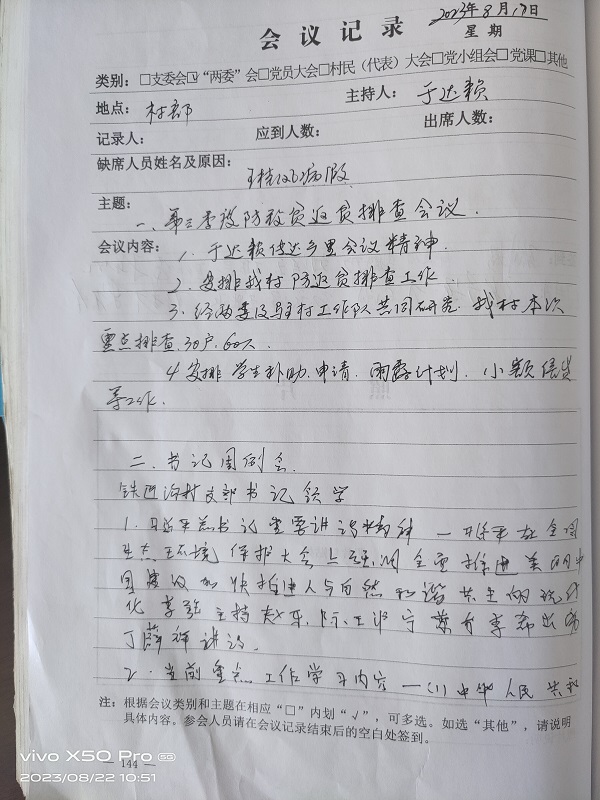 2023年8月17日
会议记录 星期
类别：□支委会☑“两委”会□党员大会□村民（代表）大会□党小组会□党课□其他
地点：村部 主持人：于达赖
记录人： 应到人数： 出席人数：
缺席人员姓名及原因：
病假
主题：
一、第三季度防致贫返贫排查会议.
会议内容：1. 于达赖传达乡里会议精神.
2. 安排我村防返贫排查工作
3. 经两委及驻村工作队共同研究. 我村本次
重点排查. 30户. 60人.
4 安排学生补助. 申请. 雨露计划. 小额信贷
等工作.
二. 书记周例会
村支部书记领学
1. 习近平总书记重要讲话精神 一 习近平在全国
生态环境保护大会上强调全面推进美丽中
国建设加快推进人与自然和谐共生的现代
化 李强主持 赵乐际 王沪宁 蔡奇 李希出席
丁薛祥讲话.
2. 当前重点工作学习内容 一 (1) 中华人民共和
注：根据会议类别和主题在相应“□”内划“√”，可多选。如选“其他”，请说明
具体内容。参会人员请在会议记录结束后的空白处签到。
vivo X50 Pro 5G
2023/08/22 10:51
— 144 —